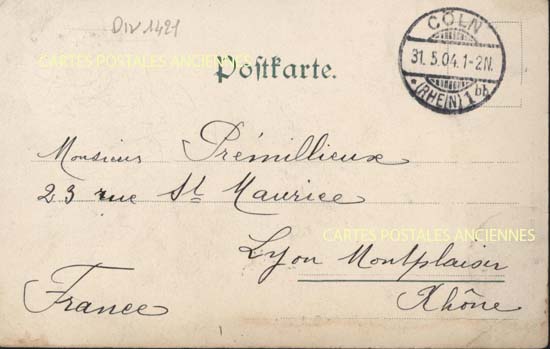 Div 1421
CARTES POSTALES ANCIENNES
Postkarte.
CÖLN
31.5.04.1-2N.
*(RHEIN)1bA
Monsieur Prémillieux
23 rue St Maurice
CARTES POSTALES ANCIENNES
Lyon Montplaisir
Rhône
France